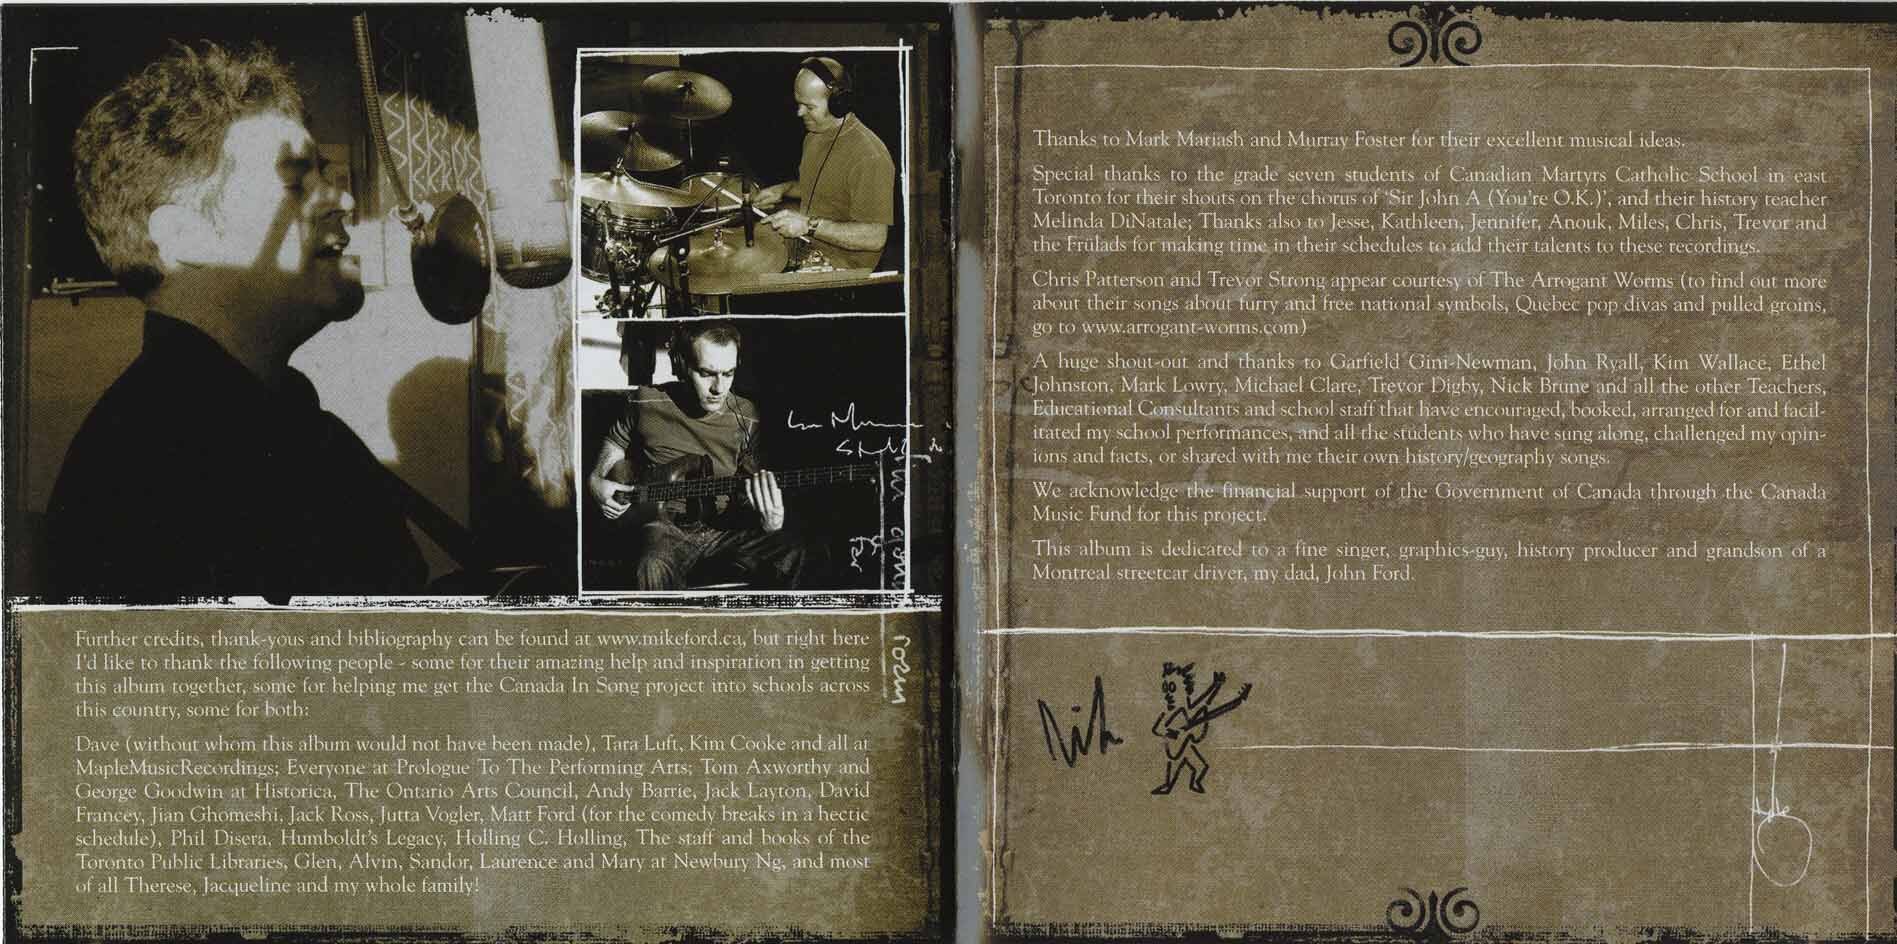 Further credits, thank-yous and bibliography can be found at www.mikeford.ca, but right here
I'd like to thank the following people - some for their amazing help and inspiration in getting
this album together, some for helping me get the Canada In Song project into schools across
this country, some for both:
Dave (without whom this album would not have been made), Tara Luft, Kim Cooke and all at
MapleMusicRecordings; Everyone at Prologue To The Performing Arts; Tom Axworthy and
George Goodwin at Historica, The Ontario Arts Council, Andy Barrie, Jack Layton, David
Francey, Jian Ghomeshi, Jack Ross, Jutta Vogler, Matt Ford (for the comedy breaks in a hectic
schedule), Phil Disera, Humboldt's Legacy, Holling C. Holling, The staff and books of the
Toronto Public Libraries, Glen, Alvin, Sandor, Laurence and Mary at Newbury Ng, and most
of all Therese, Jacqueline and my whole family!
Thanks to Mark Mariash and Murray Foster for their excellent musical ideas.
Special thanks to the grade seven students of Canadian Martyrs Catholic School in east
Toronto for their shouts on the chorus of 'Sir John A (You're O.K.)', and their history teacher
Melinda DiNatale; Thanks also to Jesse, Kathleen, Jennifer, Anouk, Miles, Chris, Trevor and
the Frülads for making time in their schedules to add their talents to these recordings.
Chris Patterson and Trevor Strong appear courtesy of The Arrogant Worms (to find out more
about their songs about furry and free national symbols, Quebec pop divas and pulled groins,
go to www.arrogant-worms.com)
A huge shout-out and thanks to Garfield Gini-Newman, John Ryall, Kim Wallace, Ethel
Johnston, Mark Lowry, Michael Clare, Trevor Digby, Nick Brune and all the other Teachers,
Educational Consultants and school staff that have encouraged, booked, arranged for and facil-
itated my school performances, and all the students who have sung along, challenged my opin-
ions and facts, or shared with me their own history/geography songs.
We acknowledge the financial support of the Government of Canada through the Canada
Music Fund for this project.
This album is dedicated to a fine singer, graphics-guy, history producer and grandson of a
Montreal streetcar driver, my dad, John Ford.